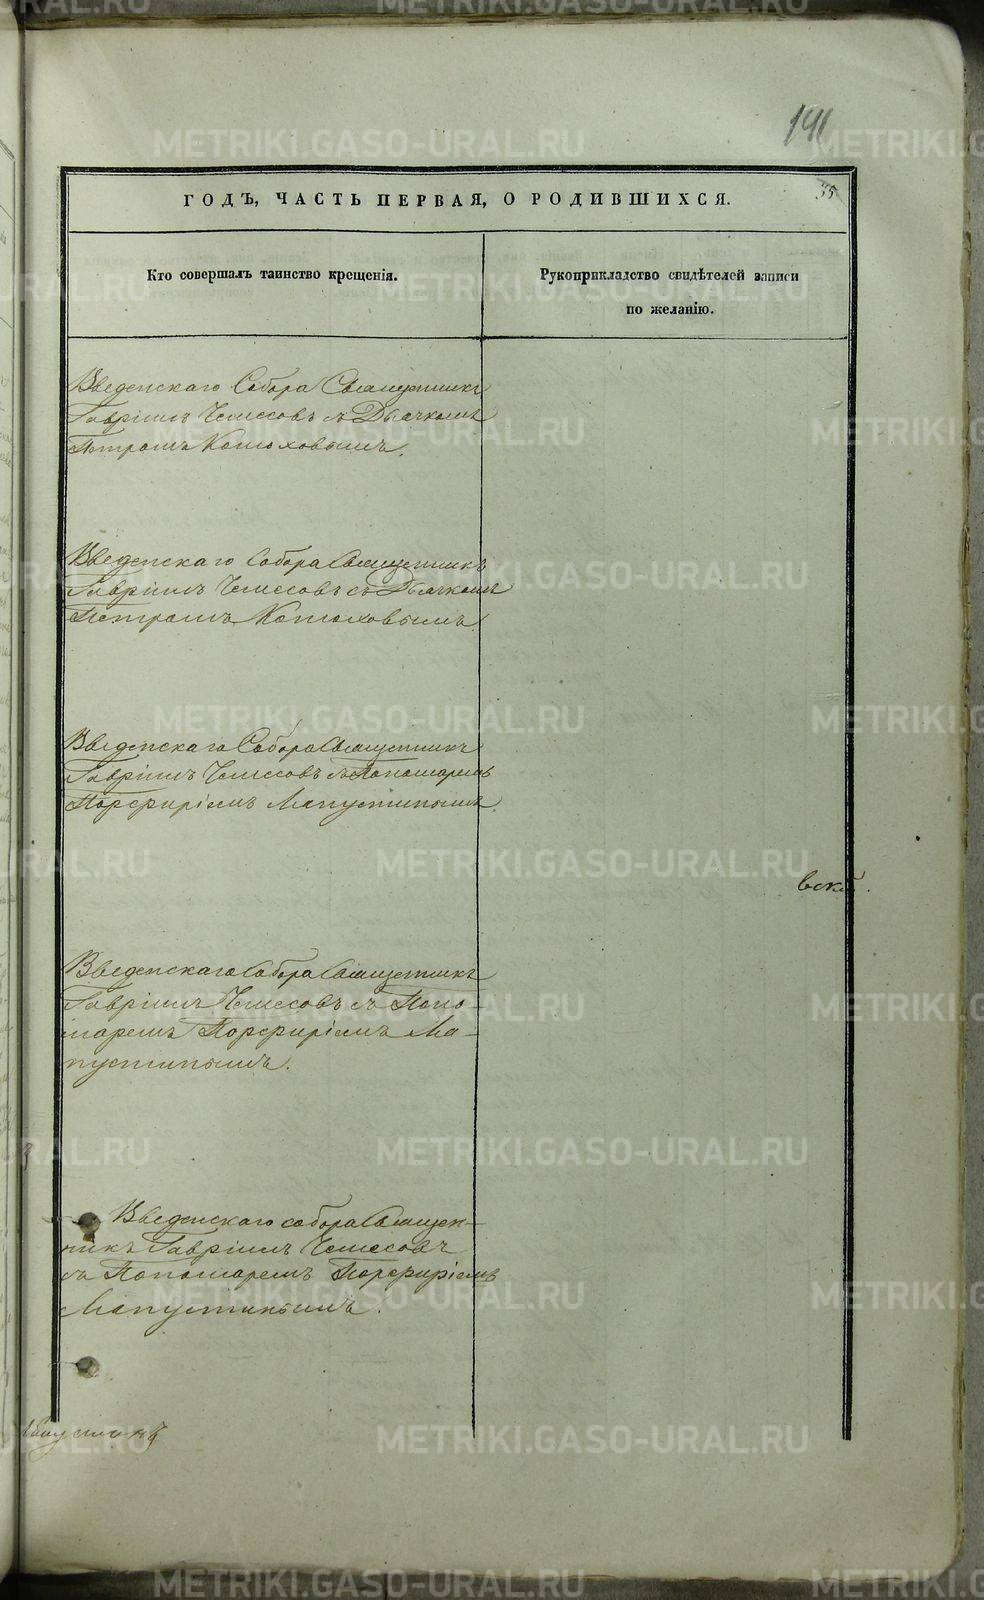 191
35
ГОДЪ, ЧАСТЬ ПЕРВАЯ, О РОДИВШИХСЯ.
Кто совершалъ таинство крещенія.
Рукоприкладство свидѣтелей записи
по желанію.
Введенскаго Собора Священникъ
Гавріилъ Чемесовъ съ Дьячкомъ
Петромъ Конюховымъ.
Введенскаго Собора Священникъ
Гавріилъ Чемесовъ съ Дьячкомъ
Петромъ Конюховымъ.
Введенскаго Собора Священникъ
Гавріилъ Чемесовъ съ Пономаремъ
Порфиріемъ Мапустинымъ.
вской.
Введенскаго Собора Священникъ
Гавріилъ Чемесовъ съ Поно-
маремъ Порфиріемъ Ма-
пустинымъ.
Введенскаго собора Священ-
никъ Гавріилъ Чемесовъ
съ Пономаремъ Порфиріемъ
Мапустинымъ.
METRIKI.GASO-URAL.RU